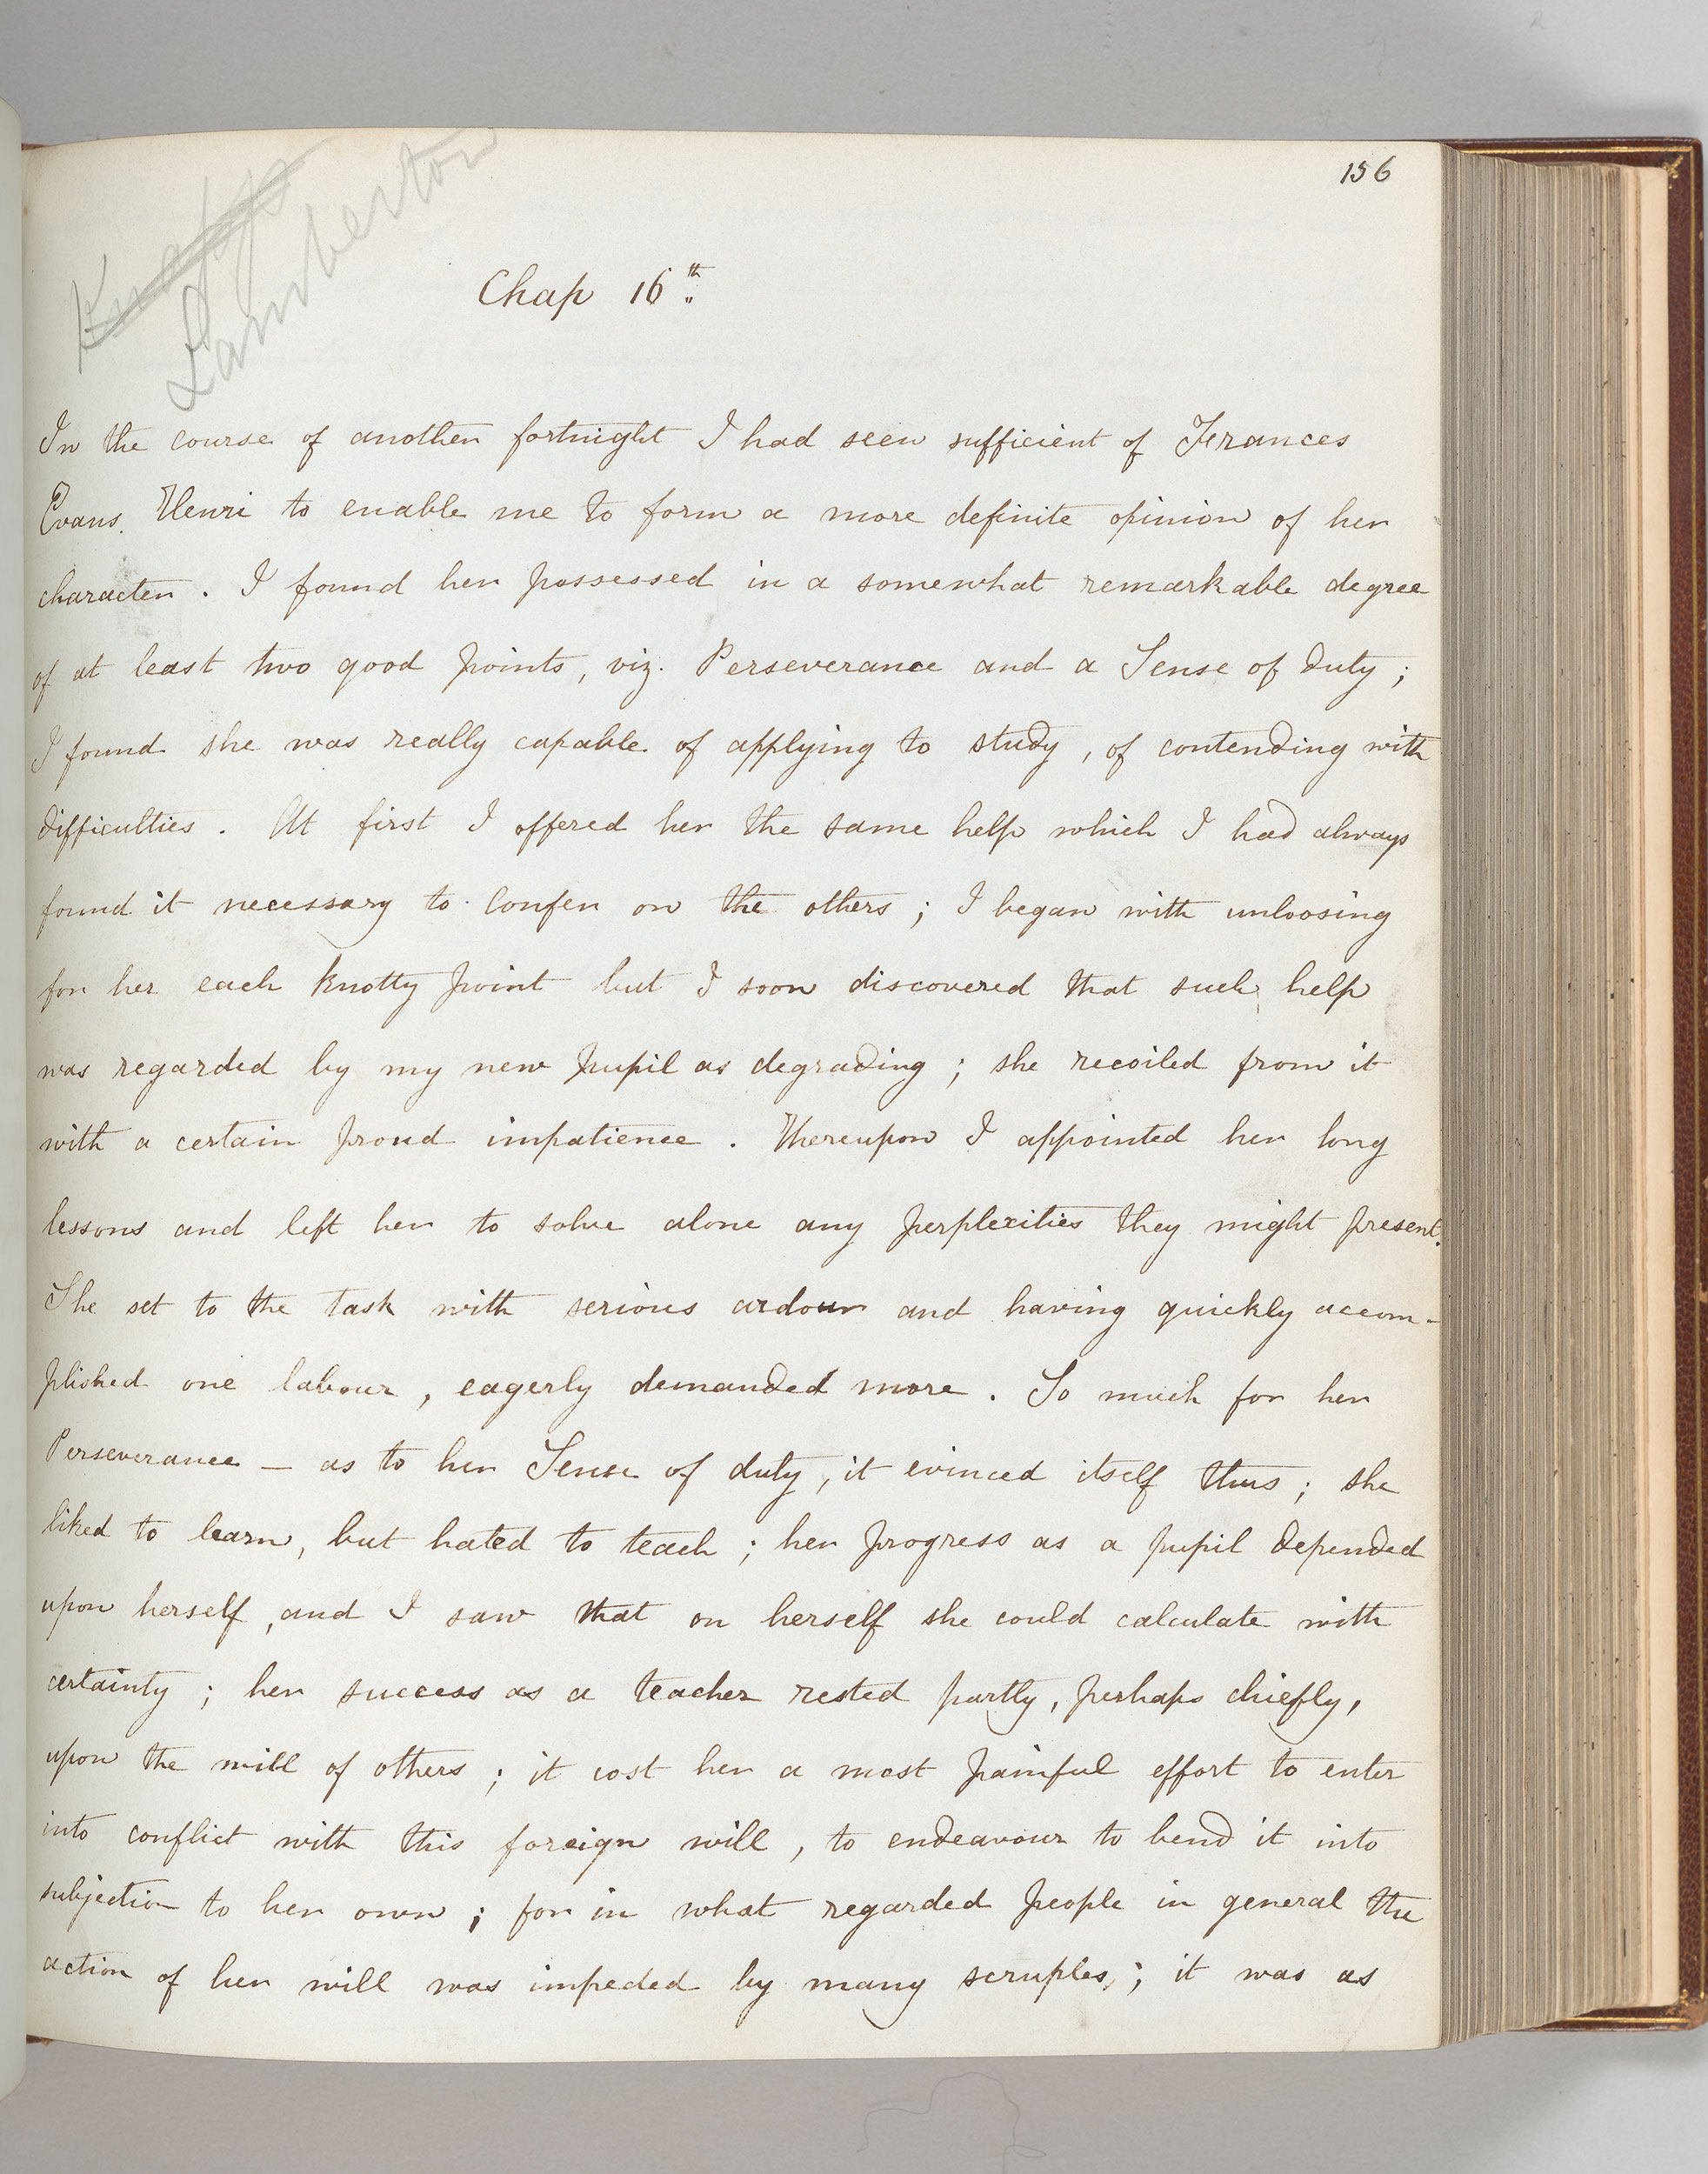 156
Lamberton
Chap 16th.
In the course of another fortnight I had seen sufficient of Frances
Evans Henri to enable me to form a more definite opinion of her
character. I found her possessed in a somewhat remarkable degree
of at least two good points, viz. Perseverance and a Sense of duty;
I found she was really capable of applying to study, of contending with
difficulties. At first I offered her the same help which I had always
found it necessary to confer on the others; I began with unloosing
for her each knotty point but I soon discovered that such help
was regarded by my new pupil as degrading; she recoiled from it
with a certain proud impatience. Thereupon I appointed her long
lessons and left her to solve alone any perplexities they might present.
She set to the task with serious ardour and having quickly accom-
plished one labour, eagerly demanded more. So much for her
Perseverance — as to her Sense of duty, it evinced itself thus; she
liked to learn, but hated to teach; her progress as a pupil depended
upon herself, and I saw that on herself she could calculate with
certainty; her success as a teacher rested partly, perhaps chiefly,
upon the will of others; it cost her a most painful effort to enter
into conflict with this foreign will, to endeavour to bend it into
subjection to her own; for in what regarded people in general the
action of her will was impeded by many scruples; it was as